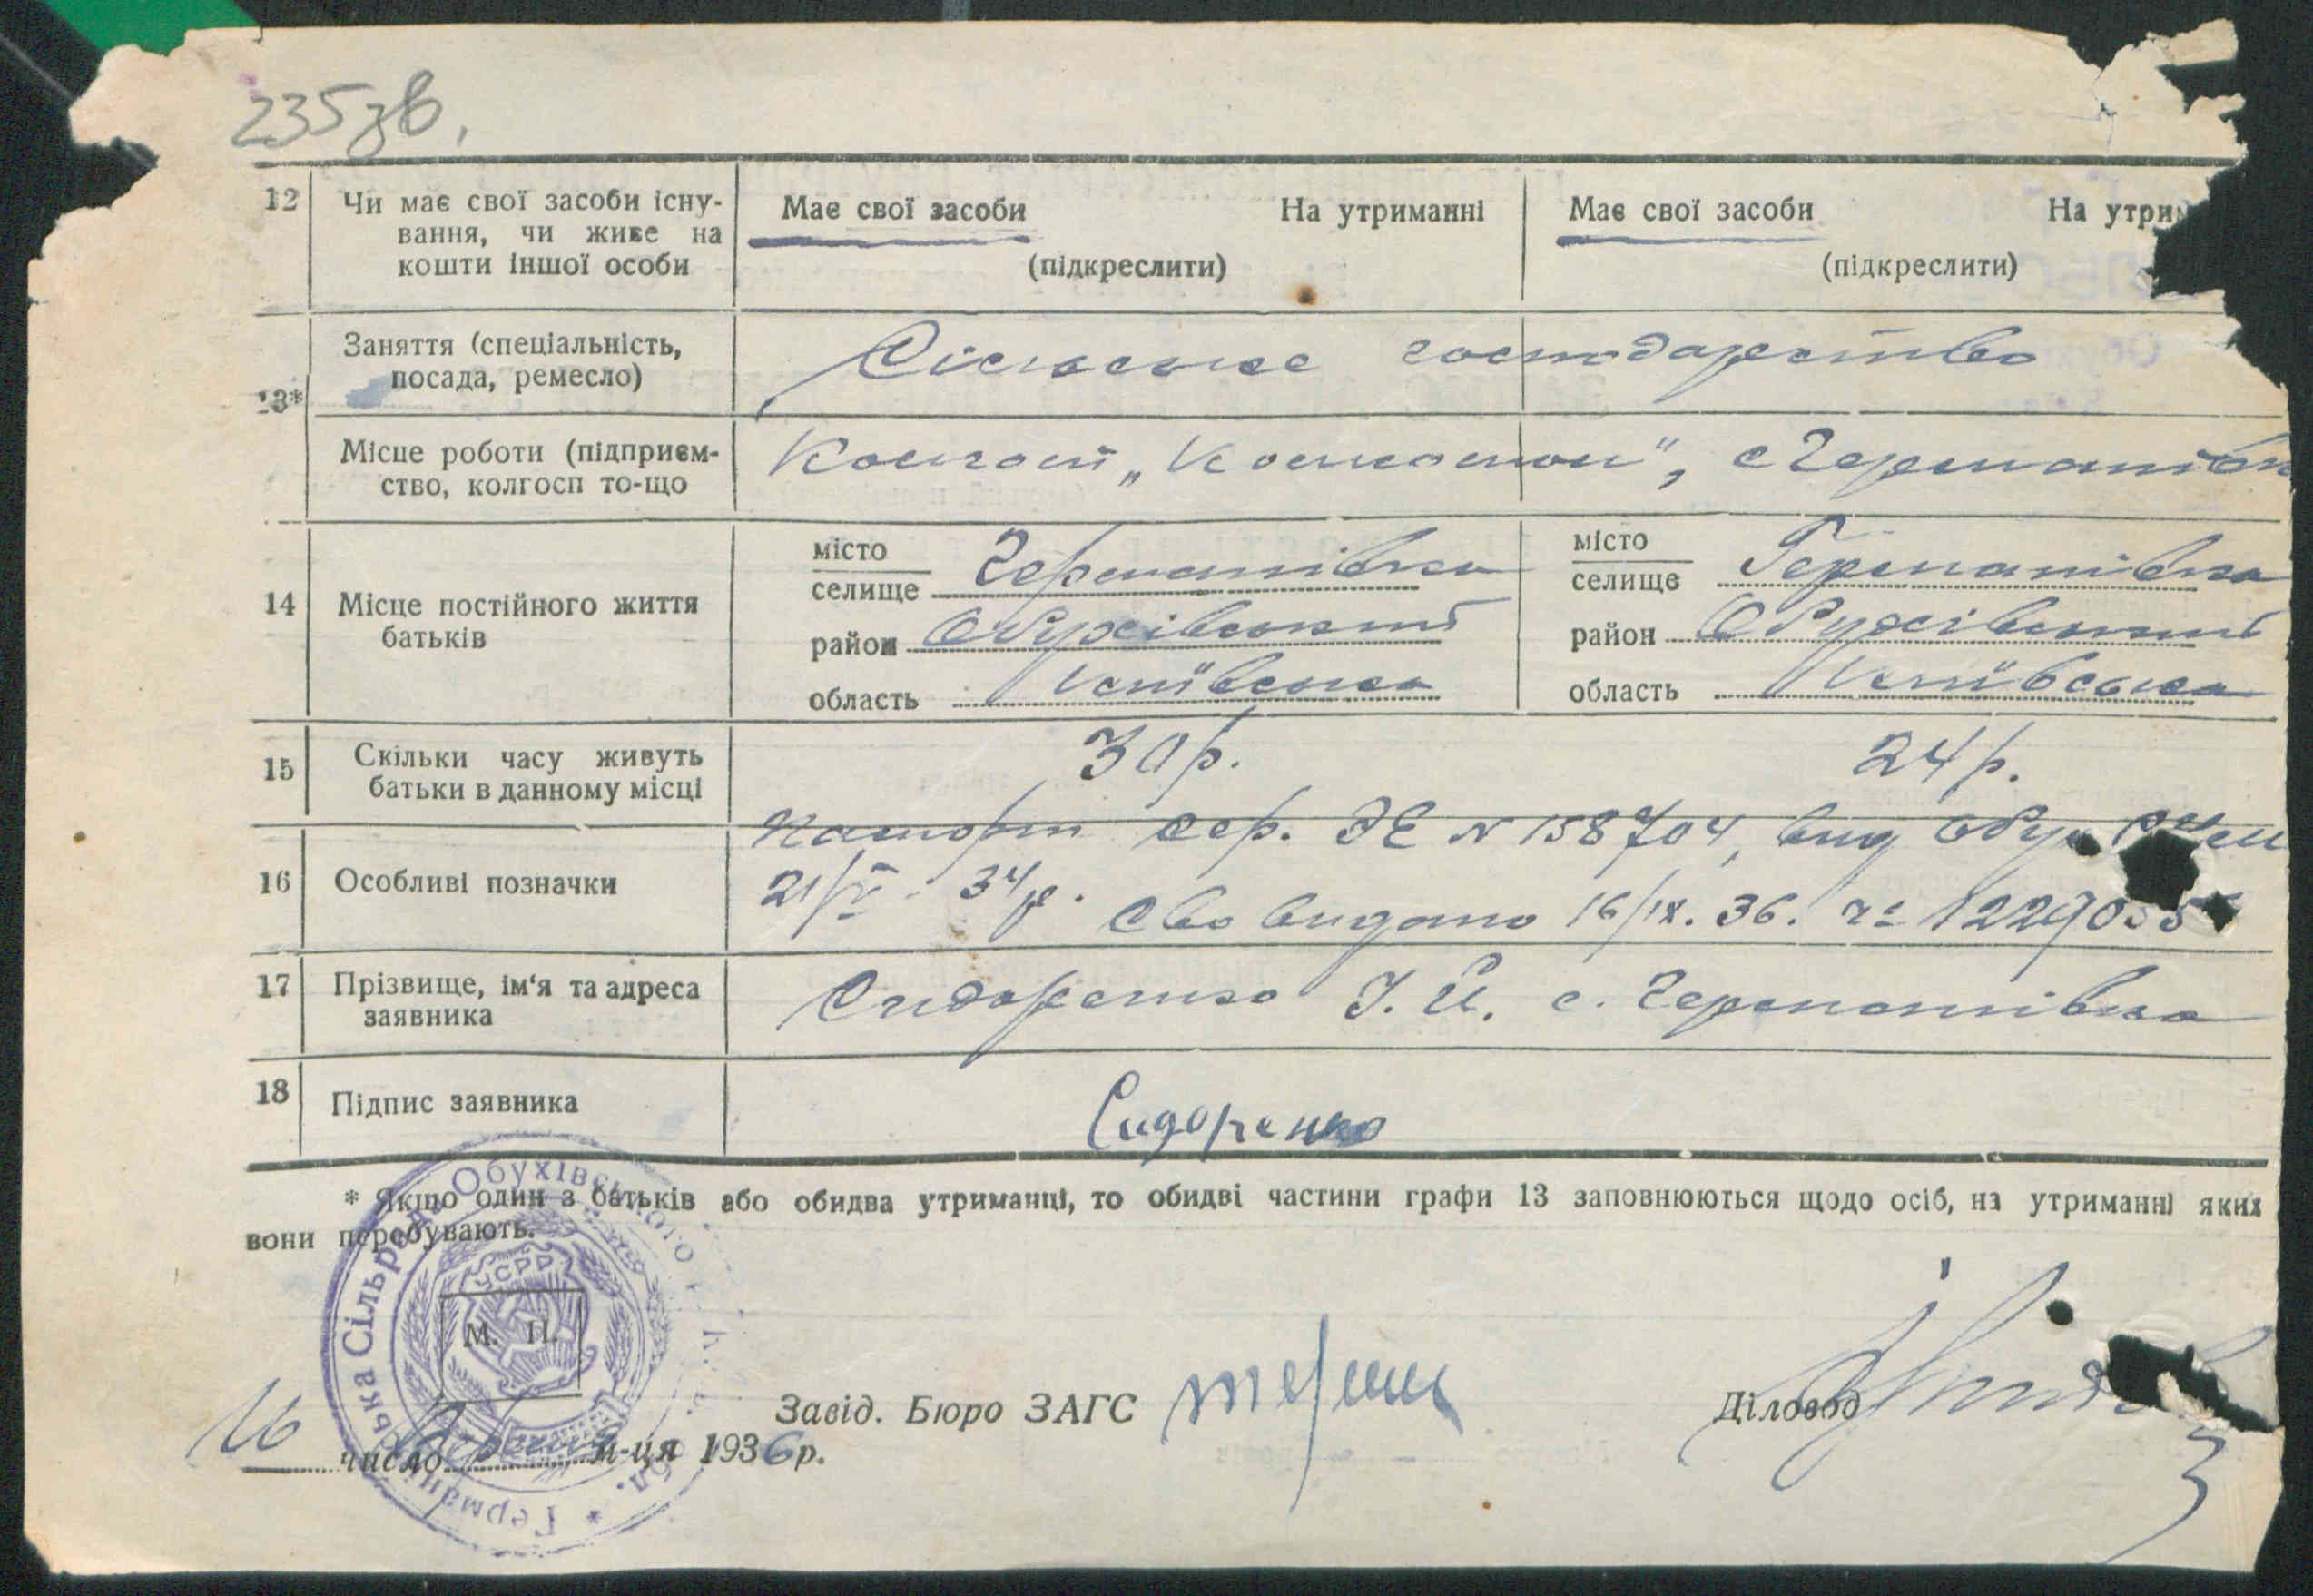 235зв.
12 Чи має свої засоби існу- Має свої засоби На утриманні Має свої засоби На утрим
вання, чи живе на
кошти іншої особи (підкреслити) (підкреслити)
13* Заняття (спеціальність, Сільське господарство
посада, ремесло)
Місце роботи (підприєм- Колгосп „ ", с Германівк
ство, колгосп то-що
14 Місце постійного життя
батьків
місто Германівка місто Германівка
селище селище
район Обухівський район Обухівський
область Київська область Київська
15 Скільки часу живуть 30 р. 24 р.
батьки в данному місці
16 Особливі позначки
Паспорт сер. ЭЕ № 158704, вид Обух
21/V 34 р. Сво видано 16/ІХ. 36. 
17 Прізвище, ім'я та адреса Сидоренко І. Й. с. Германівка
заявника
18 Підпис заявника Сидоренко
* Якщо один з батьків або обидва утриманці, то обидві частини графи 13 заповнюються щодо осіб, на утриманні яких
вони перебувають.
Сільрада Обухівського
УСРР
М. П.
Завід. Бюро ЗАГС Діловод
16 число м-ця 1936 р.